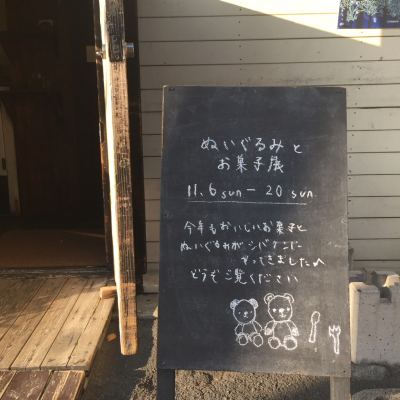 ぬいぐるみと
お菓子展
11.6 sun – 20 sun
今年もおいしいお菓子と
ぬいぐるみが シバケンに
やってきました♪
どうぞご覧ください